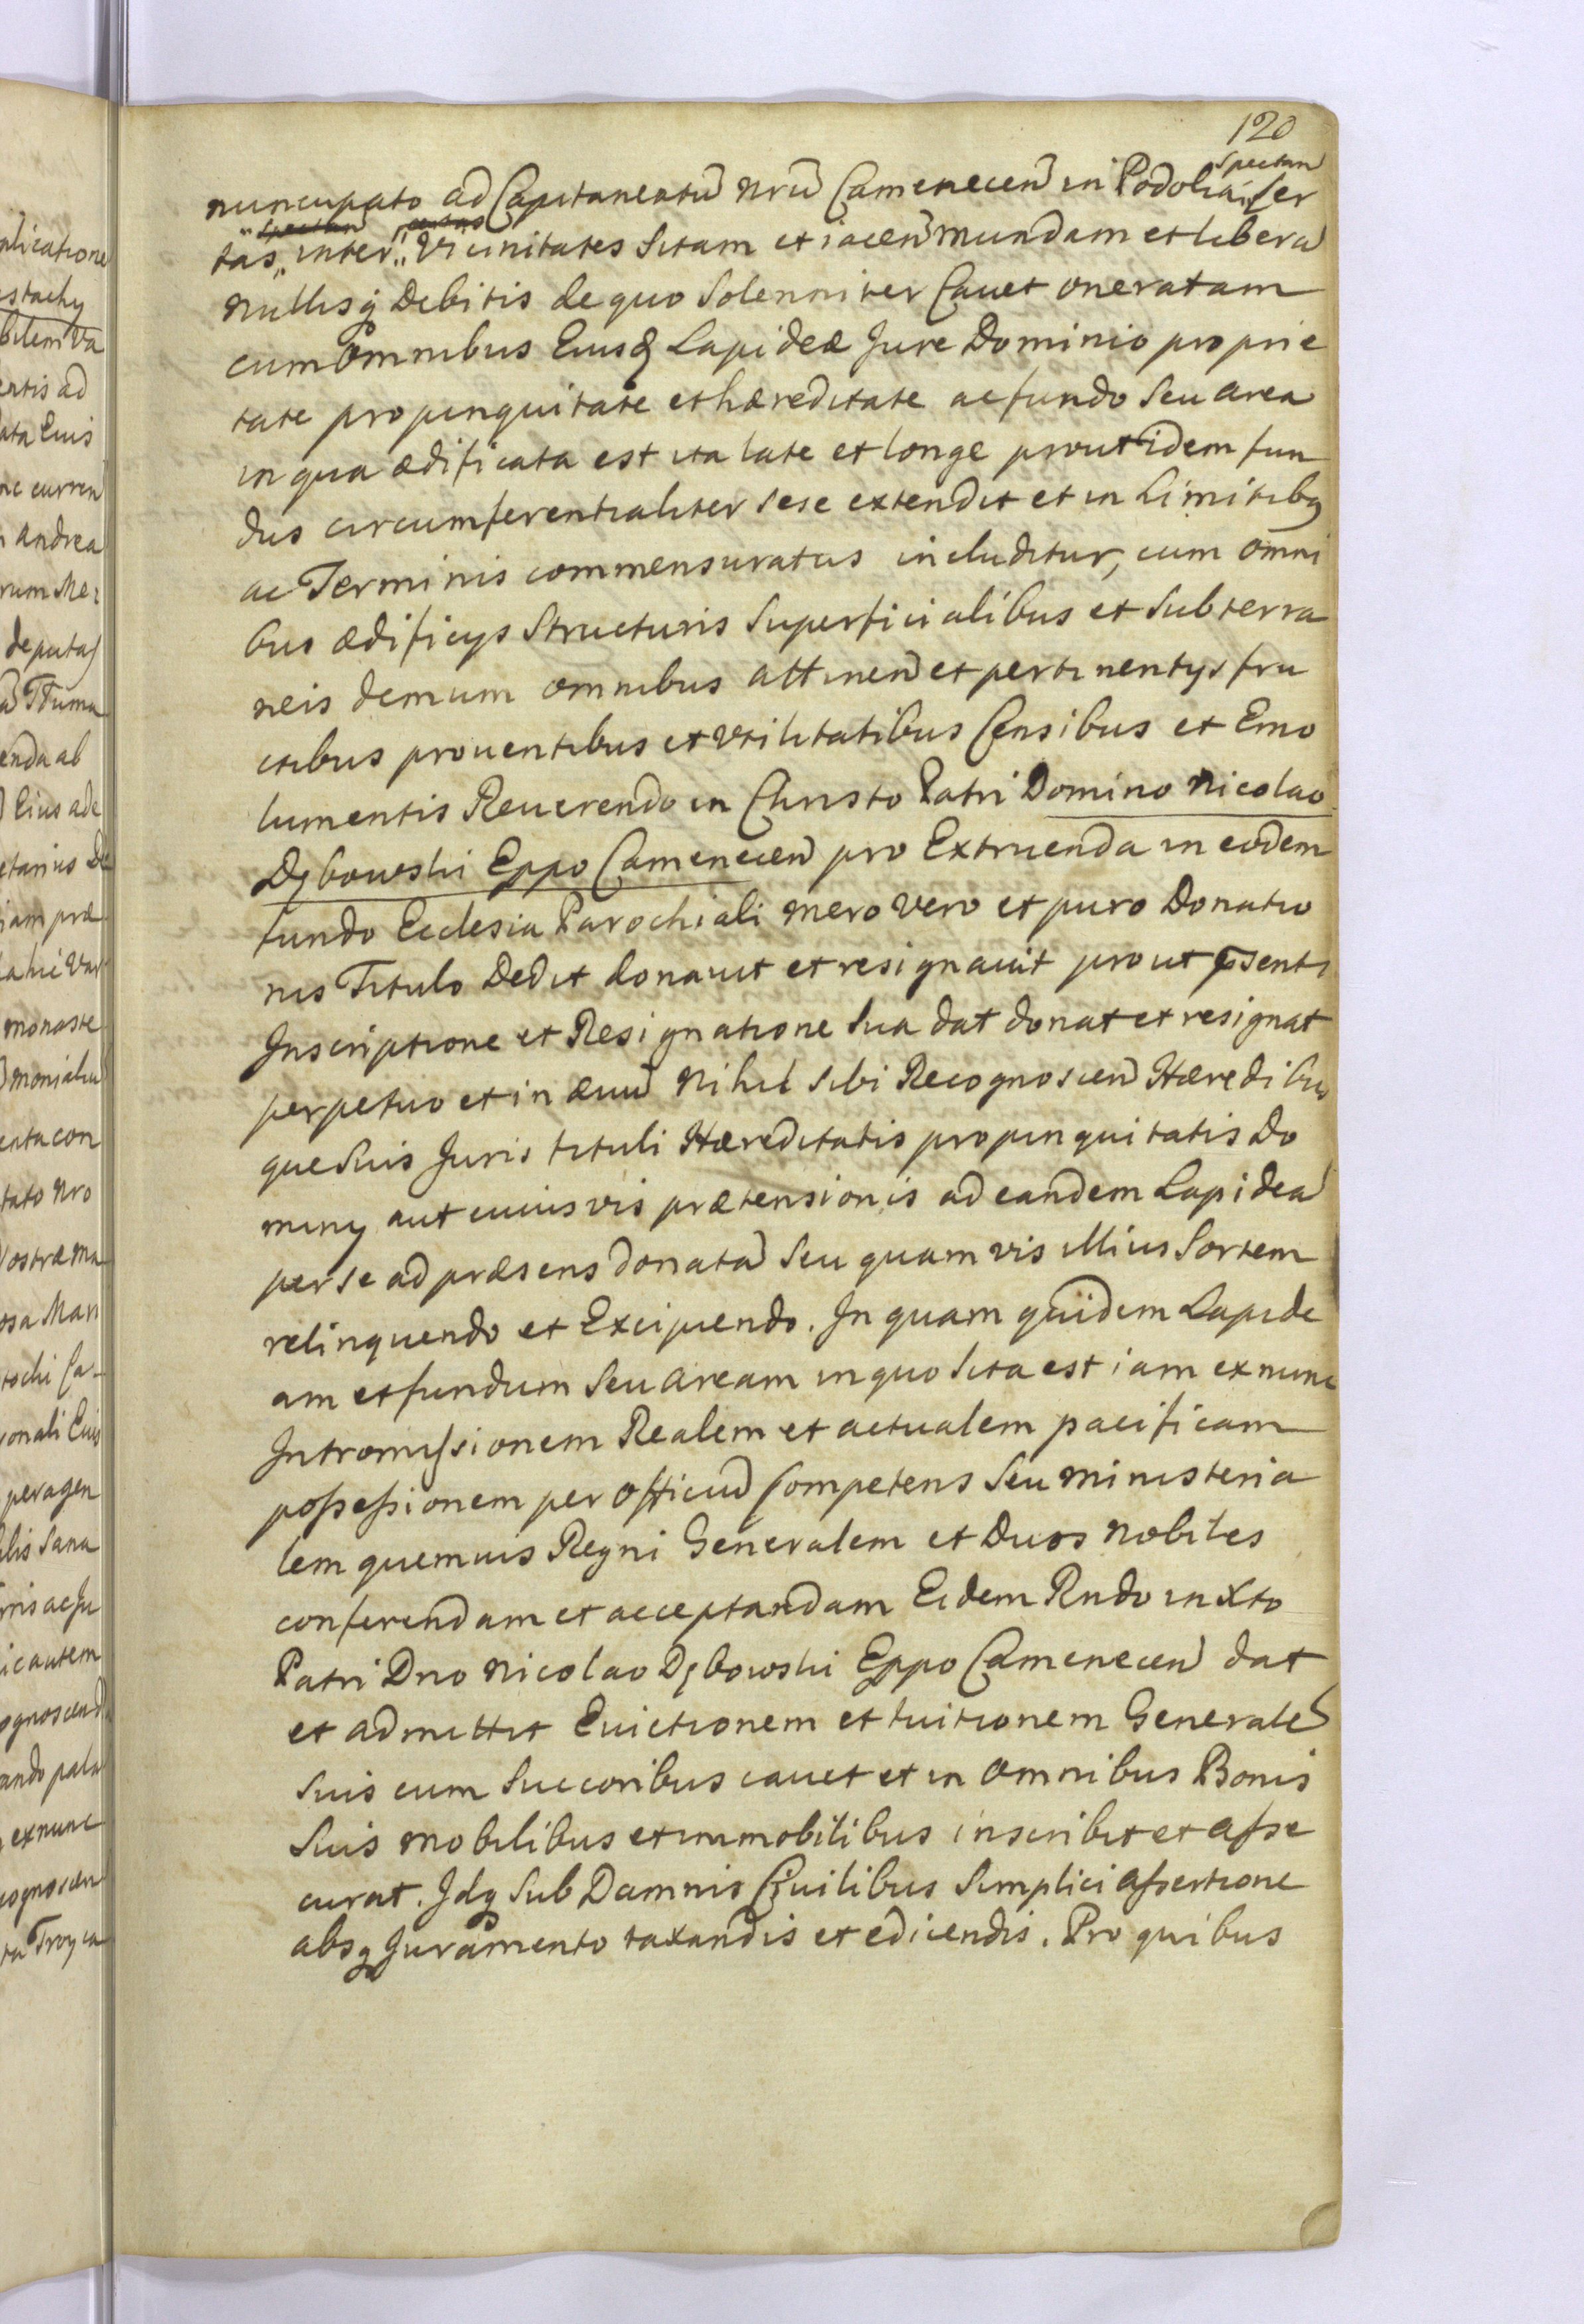 120
nuncupato ad Capitaneatū nrū Camenecen̄ in Podolia spectan̄ Cer
tas inter Vicinitates Sitam et iacen̄ mundam et liberā
nullisq̨ Debitis de quo Solenniter Cauet oneratam
cum omnibus Eiusq̨ Lapideæ Jure Dominio proprie
tate propinquitate et hæreditate ac fundo Seu area
in qua ædificata est ita late et longe prout idem fun
dus circumferentialiter sese extendit et in Limitibq̨
ac Terminis commensuratus includitur, cum omni
bus ædificys Structuris Superficialibus et Subterra
neis demum omnibus attinen̄ et pertinentys fru
ctibus prouentibus et vtilitatibus Censibus et Emo
lumentis Reuerendo in Christo Patri Domino Nicolao
Dębowski Eppo Camenecen̄ pro Extruenda in eodem
fundo Ecclesia Parochiali mero vero et puro Donatio
nis Titulo Dedit donauit et resignauit prout p̄senti
Inscriptione et Resignatione sua dat donat et resignat
perpetuo et in æuū Nihil sibi Recognoscen̄ Hæredibus
que Suis Juris tituli Hæreditatis propinquitatis Do
miny aut cuiusvis prætensionis ad eandem Lapideā
per se ad præsens donatā Seu quamvis illius Sortem
relinquendo et Excipiendo. In quam quidem Lapide
am et fundum Seu aream in quo sita est iam ex nunc
Intromissionem Realem et actualem pacificam
possessionem per officiū Competens Seu Ministeria
lem quemuis Regni Generalem et Duos Nobiles
conferendam et acceptandam Eidem Rndo in Xto
Patri Dno Nicolao Dębowski Eppo Camenecen̄ dat
et admittit Euictionem et tuitionem Generalē
Suis cum Succoribus cauet et in omnibus Bonis
Suis mobilibus et immobilibus inscribit et asse
curat. Idq̨ Sub Damnis Ciuilibus Simplici assertione
absq̨ Juramento taxandis et edicendis. Pro quibus